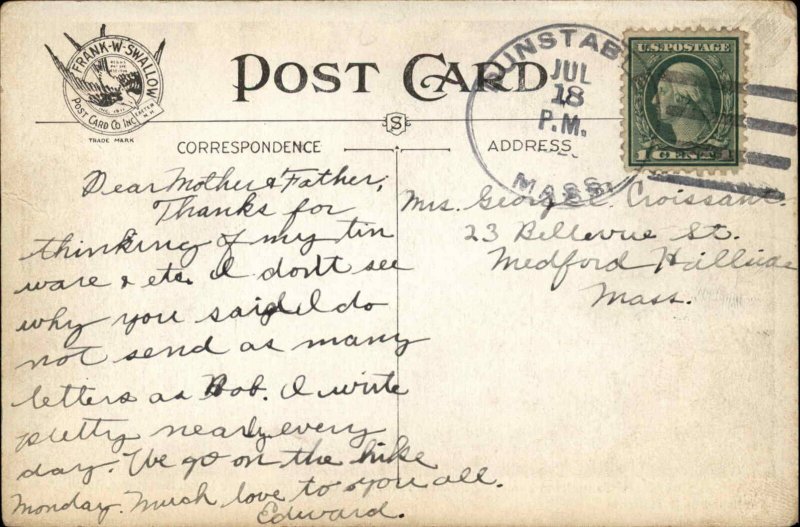 FRANK-W-SWALLOW
POST CARD CO INC.
EXETER N.H.
TRADE MARK
POST CARD
DUNSTABLE
JUL
18
P.M.
MASS.
U.S. POSTAGE
1 CENTS 1
S
CORRESPONDENCE
ADDRESS
Dear Mother & Father,
Thanks for
thinking of my tin
ware & etc. I don't see
why you said I do
not send as many
letters as Bob. I write
pretty nearly every
day. We go on the hike
Monday. Much love to you all.
Edward.
Mrs. George E. Croissant.
23 Bellevue St.
Medford Hillside
Mass.